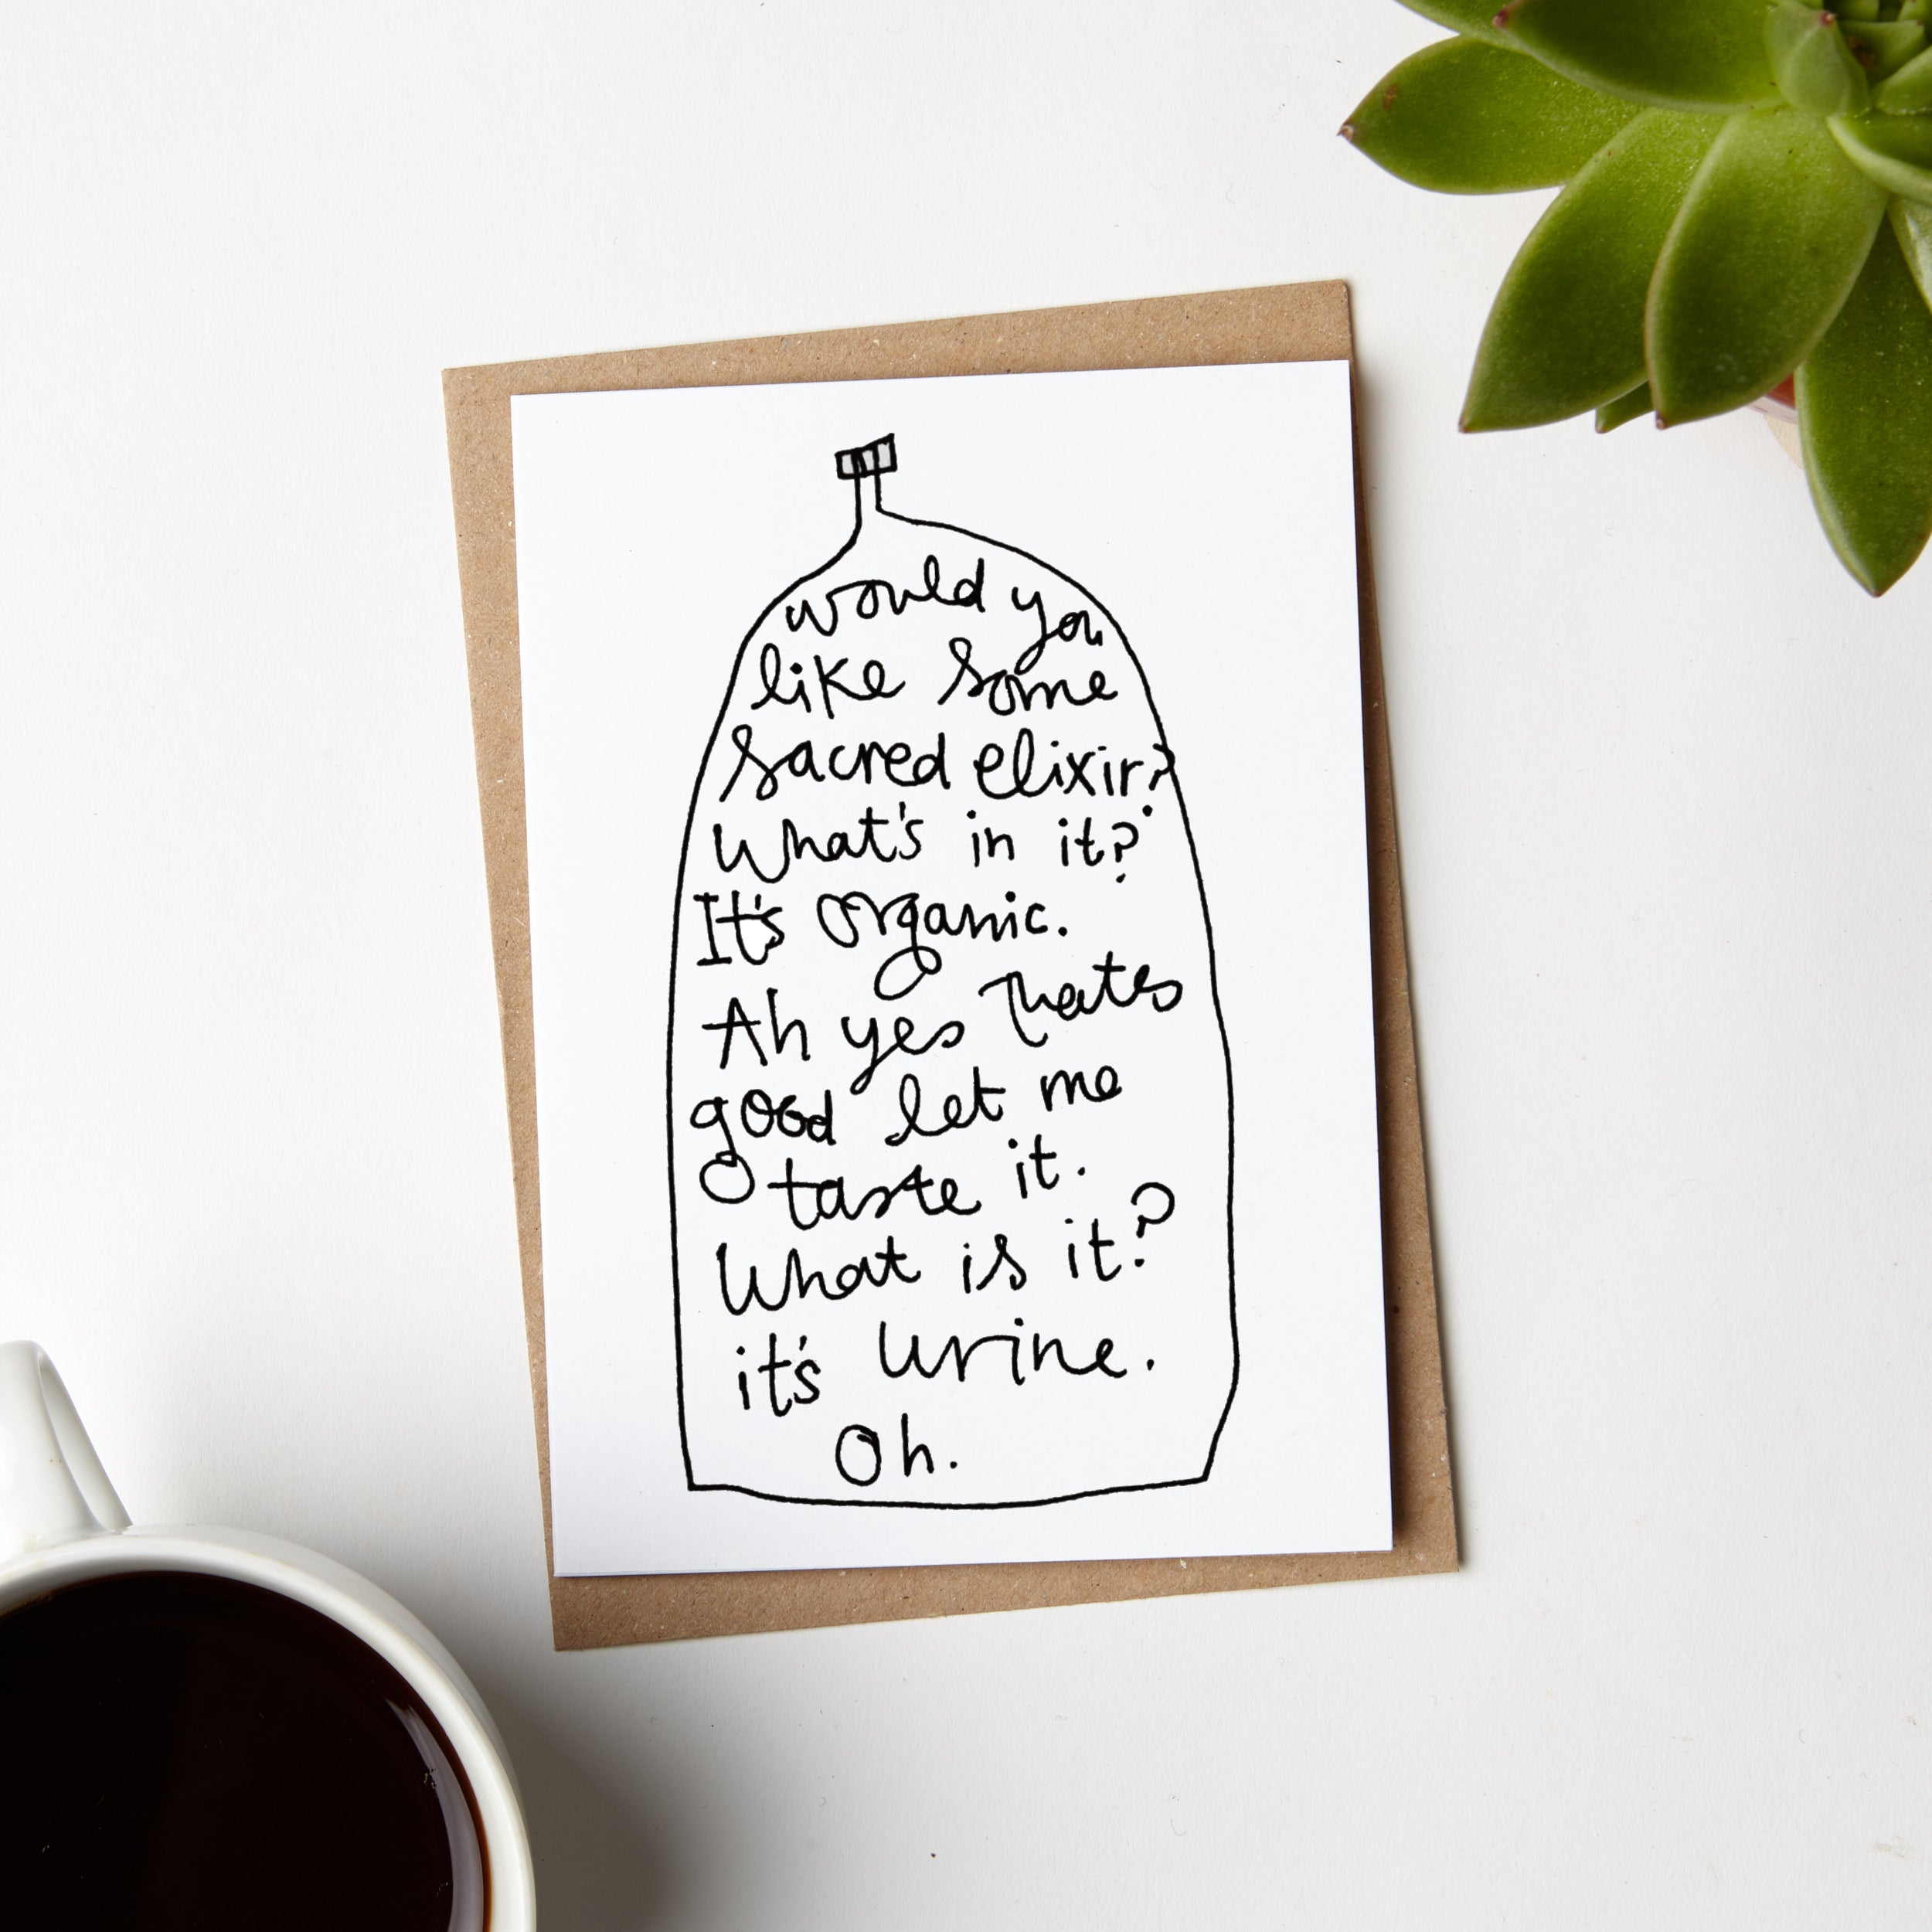 would you
like some
sacred elixir?
What's in it?
It's organic.
Ah yes thats
good let me
taste it.
What is it?
it's urine.
Oh.